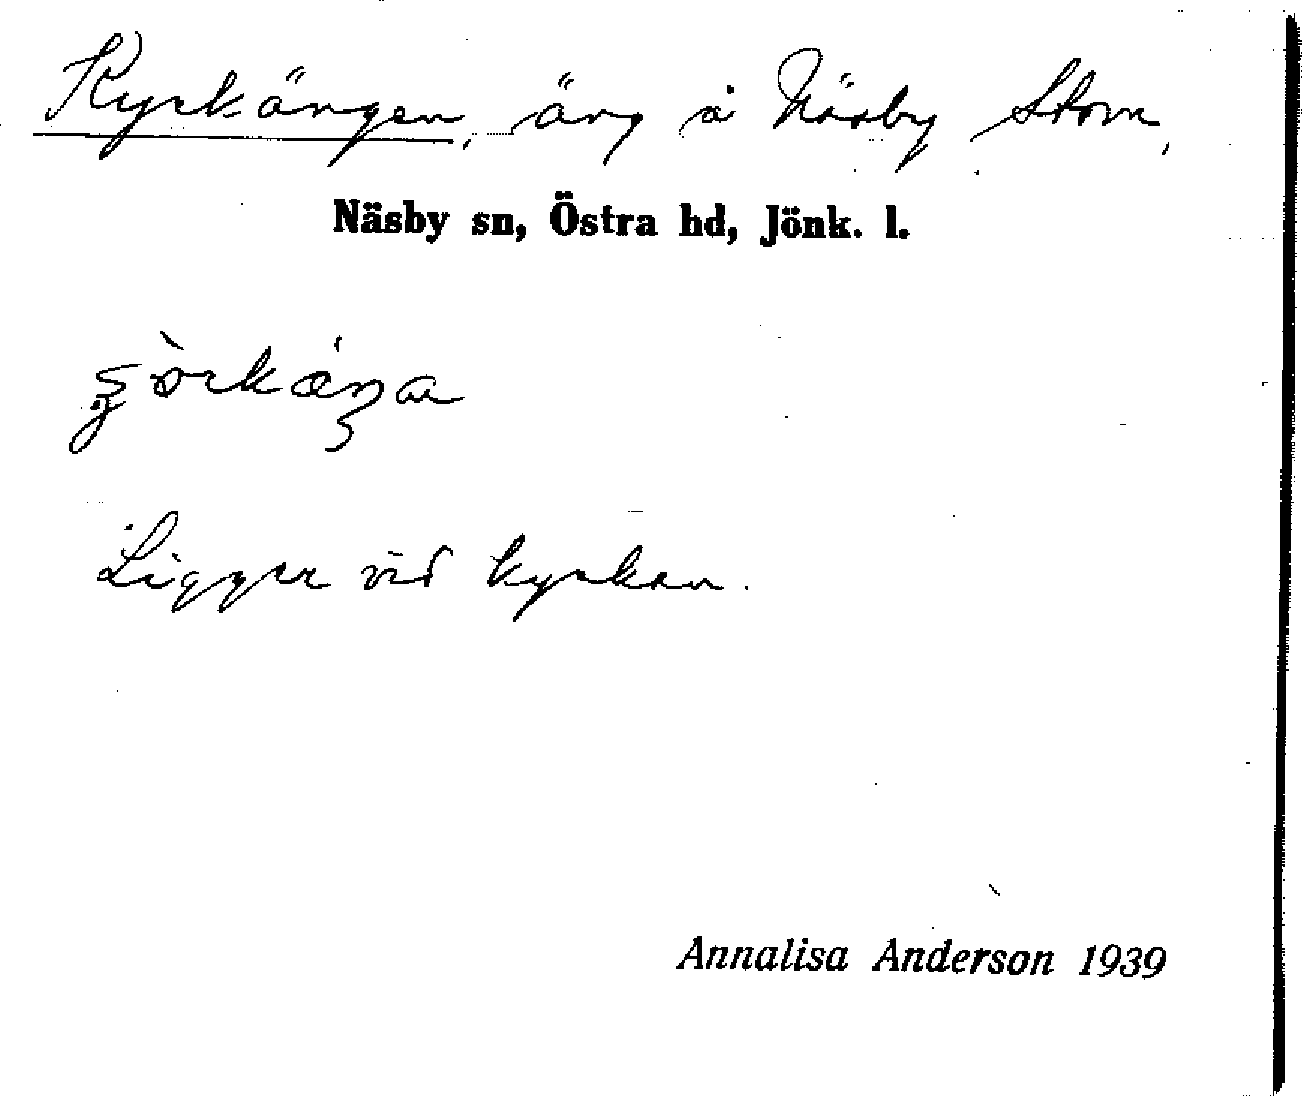 Kyrkängen, äng å Näsby Stom,
Näsby sn, Östra hd, Jönk. l.
Ligger vid kyrkan.
Annalisa Anderson 1939